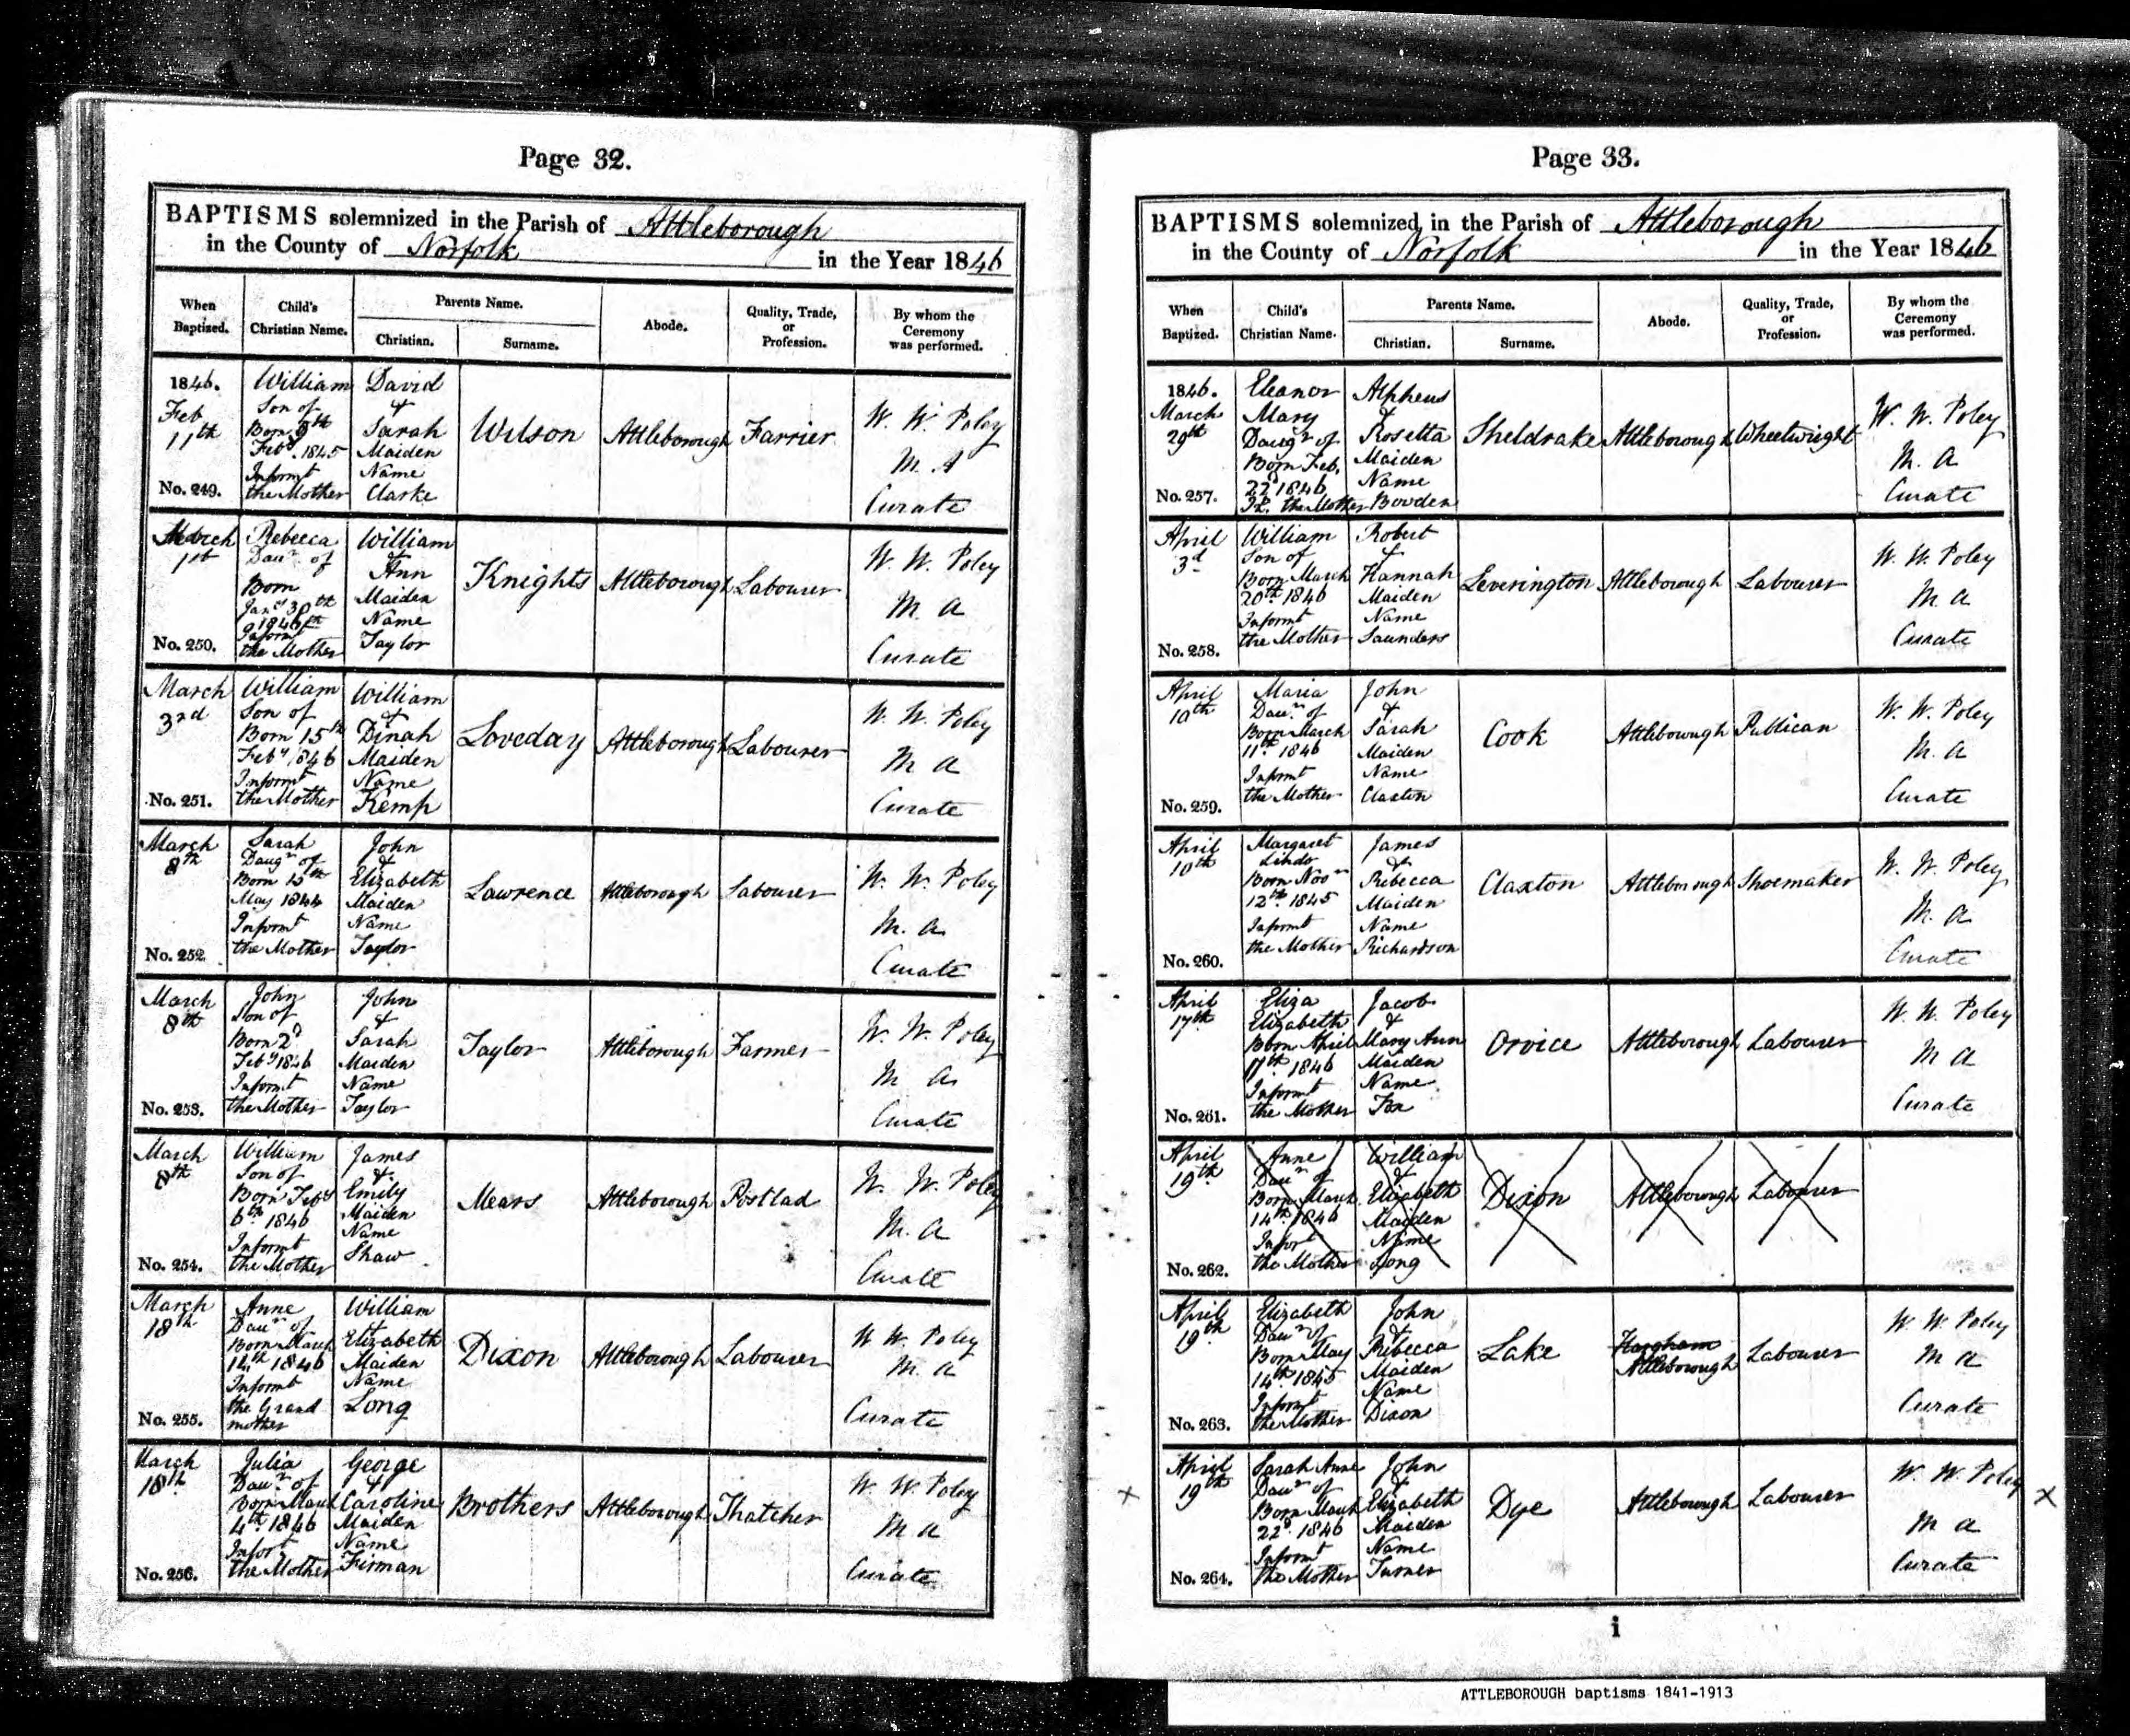 Page 32.
BAPTISMS solemnized in the Parish of Attleborough
in the County of Norfolk in the Year 1846
When Baptized.
Child's Christian Name.
Parents Name.
Christian.
Surname.
Abode.
Quality, Trade, or Profession.
By whom the Ceremony was performed.
1846.
Feb
11th
No. 249.
William
Son of
Born 9th
Feby. 1845
Informt
the Mother
David
&
Sarah
Maiden
Name
Clarke
Wilson
Attleborough
Farrier
W. W. Poley
M. A
Curate
March
1st
No. 250.
Rebecca
Daur. of
Born
Jany 30th
1846
Informt
the Mother
William
& Ann
Maiden
Name
Taylor
Knights
Attleborough
Labourer
W. W. Poley
M. A
Curate
March
3rd
No. 251.
William
Son of
Born 15th
Feby 1846
Informt
the Mother
William
&
Dinah
Maiden
Name
Kemp
Loveday
Attleborough
Labourer
W. W. Poley
M A
Curate
March
8th
No. 252.
Sarah
Daugr of
Born 15th
May 1844
Informt
the Mother
John
&
Elizabeth
Maiden
Name
Taylor
Lawrence
Attleborough
Labourer
W. W. Poley
M. A
Curate
March
8th
No. 253.
John
Son of
Born 2d
Feby 1846
Informt
the Mother
John
&
Sarah
Maiden
Name
Taylor
Taylor
Attleborough
Farmer
W. W. Poley
M A
Curate
March
8th
No. 254.
William
Son of
Born Feby
6th 1846
Informt
the Mother
James
&
Emily
Maiden
Name
Shaw
Mears
Attleborough
Postlad
W. W. Poley
M. A
Curate
March
18th
No. 255.
Anne
Daur of
Born March
14th 1846
Informt
the Grand
mother
William
&
Elizabeth
Maiden
Name
Long
Dixon
Attleborough
Labourer
W W. Poley
M. A
Curate
March
18th
No. 256.
Julia
Daur. of
Born March
4th 1846
Infort
the Mother
George
&
Caroline
Maiden
Name
Firman
Brothers
Attleborough
Thatcher
W. W. Poley
M A
Curate
Page 33.
BAPTISMS solemnized in the Parish of Attleborough
in the County of Norfolk in the Year 1846
When Baptized.
Child's Christian Name.
Parents Name.
Christian.
Surname.
Abode.
Quality, Trade, or Profession.
By whom the Ceremony was performed.
1846.
March
29th
No. 257.
Eleanor
Mary
Daugr of
Born Feb.
22d 1846
the Mother
Alpheus
&
Rosetta
Maiden
Name
Bowden
Sheldrake
Attleborough
Wheelwright
W. W. Poley
M. A
Curate
April
3d
No. 258.
William
Son of
Born March
20th 1846
Informt
the Mother
Robert
&
Hannah
Maiden
Name
Saunders
Leverington
Attleborough
Labourer
W. W. Poley
M A
Curate
April
10th
No. 259.
Maria
Daur. of
Born March
11th 1846
Informt
the Mother
John
&
Sarah
Maiden
Name
Claxton
Cook
Attleborough
Publican
W. W. Poley
M. A
Curate
April
10th
No. 260.
Margaret
Born Novr
12th 1845
Informt
the Mother
James
&
Rebecca
Maiden
Name
Richardson
Claxton
Attleborough
Shoemaker
W. W. Poley
M. A
Curate
April
17th
No. 261.
Eliza
Elizabeth
Born April
1846
Informt
the Mother
Jacob
&
Mary Ann
Maiden
Name
Fox
Orvice
Attleborough
Labourer
W. W. Poley
M A
Curate
April
19th
No. 262.
Anne
Daur of
Born March
14th 1846
Infort
the Mother
William
&
Elizabeth
Maiden
Name
Long
Dixon
Attleborough
Labourer
April
19th
No. 263.
Elizabeth
Daur of
Born May
14th 1845
Informt
the Mother
John
&
Rebecca
Maiden
Name
Dixon
Lake
Hargham
Attleborough
Labourer
W W Poley
M A
Curate
April
19th
No. 264.
Sarah Anne
Daur of
Born March
22d 1846
Informt
the Mother
John
&
Elizabeth
Maiden
Name
Turner
Dye
Attleborough
Labourer
W. W Poley
M A
Curate
x
x
i
ATTLEBOROUGH baptisms 1841-1913